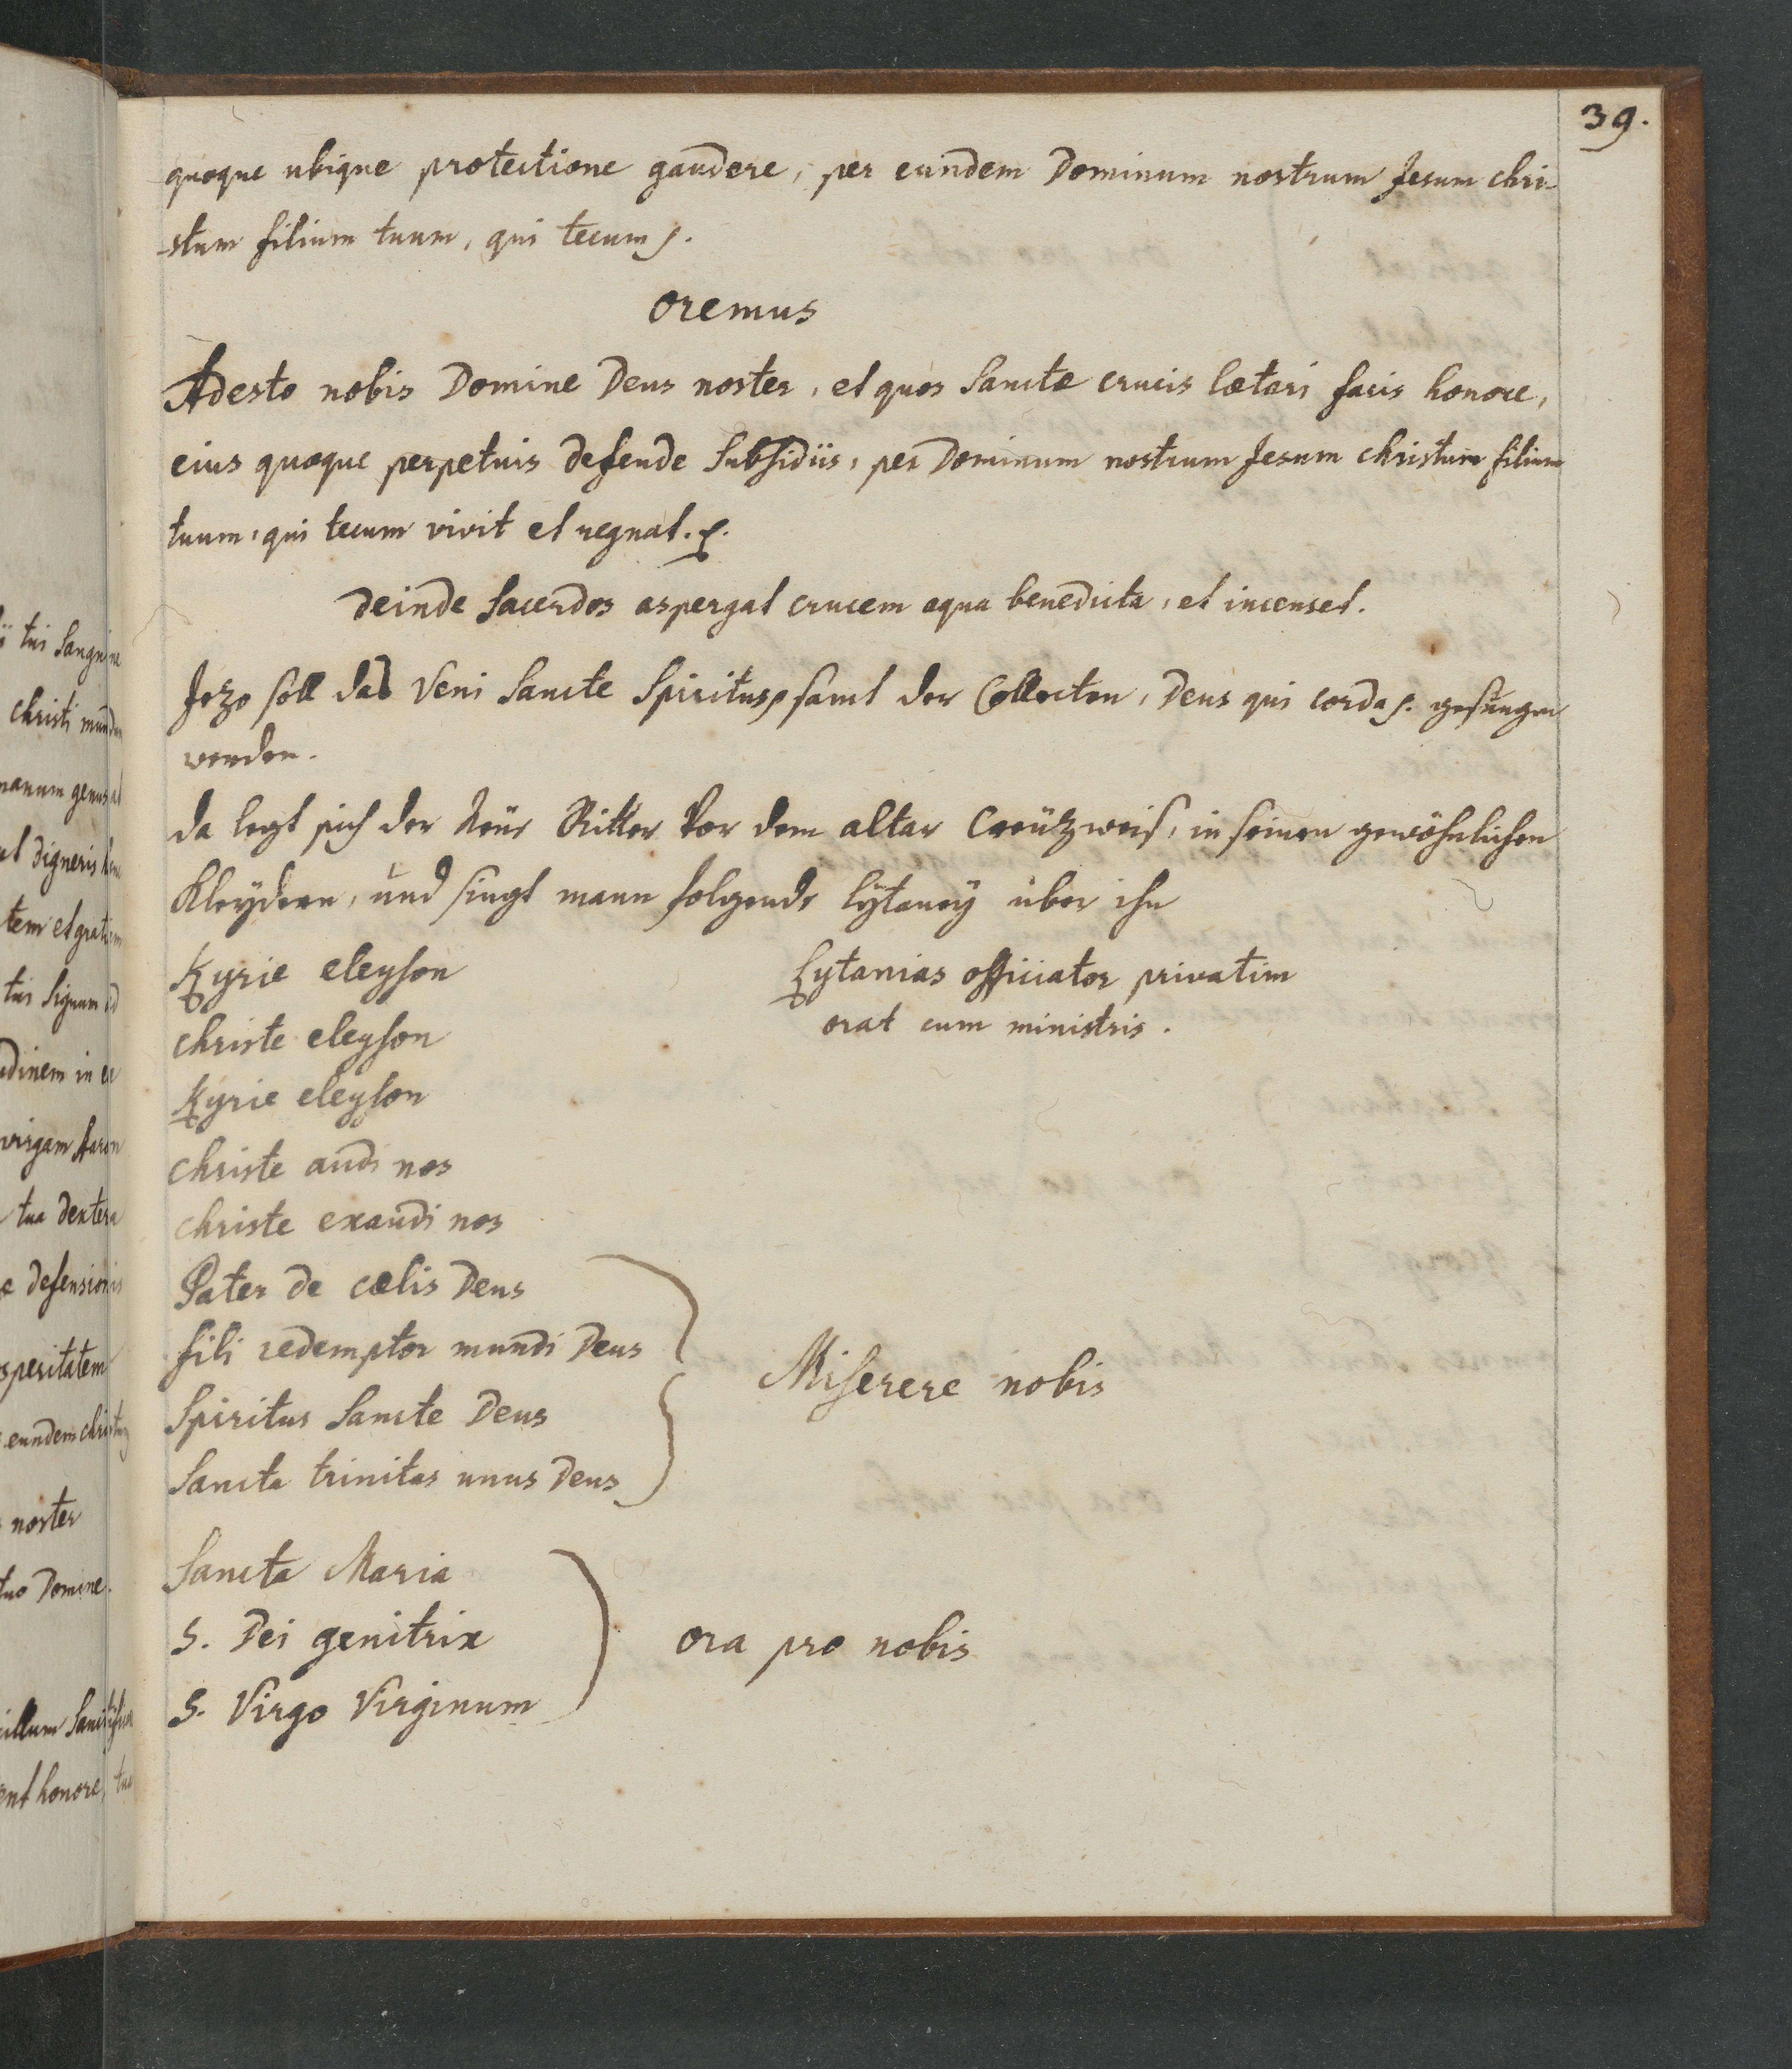 39.
quoque ubique protectione gaudere, per eundem Dominum nostrum Jesum chri-
-stum filium tuum, qui tecum ꝭ.
oremus
Adesto nobis Domine Deus noster, et quos Sanctæ crucis lætari facis honore,
eius quoque perpetuis defende Subsidiis, per Dominum nostrum Jesum christum filium
tuum, qui tecum vivit et regnat. ꝭ.
deinde Sacerdos aspergat crucem aqua benedicta, et incenset.
Jezo soll das Veni Sancte Spiritus ꝭ samt der Collecten, Deus qui corda ꝭ. gesungen
werden.
da legt sich der Neue Ritter vor dem altar Creützweis, in seinen gewöhnlichen
Kleydern, und singt mann folgende lÿtaneÿ über ihn
Kyrie eleyson
Lytanias officiator privatim
orat cum ministris.
christe eleyson
Kyrie eleyson
christe audi nos
christe exaudi nos
Pater de cælis Deus
fili redemptor mundi Deus
Miserere nobis
Spiritus Sancte Deus
Sancta trinitas unus Deus
Sancta Maria
S. Dei genitrix
ora pro nobis
S. Virgo Virginum